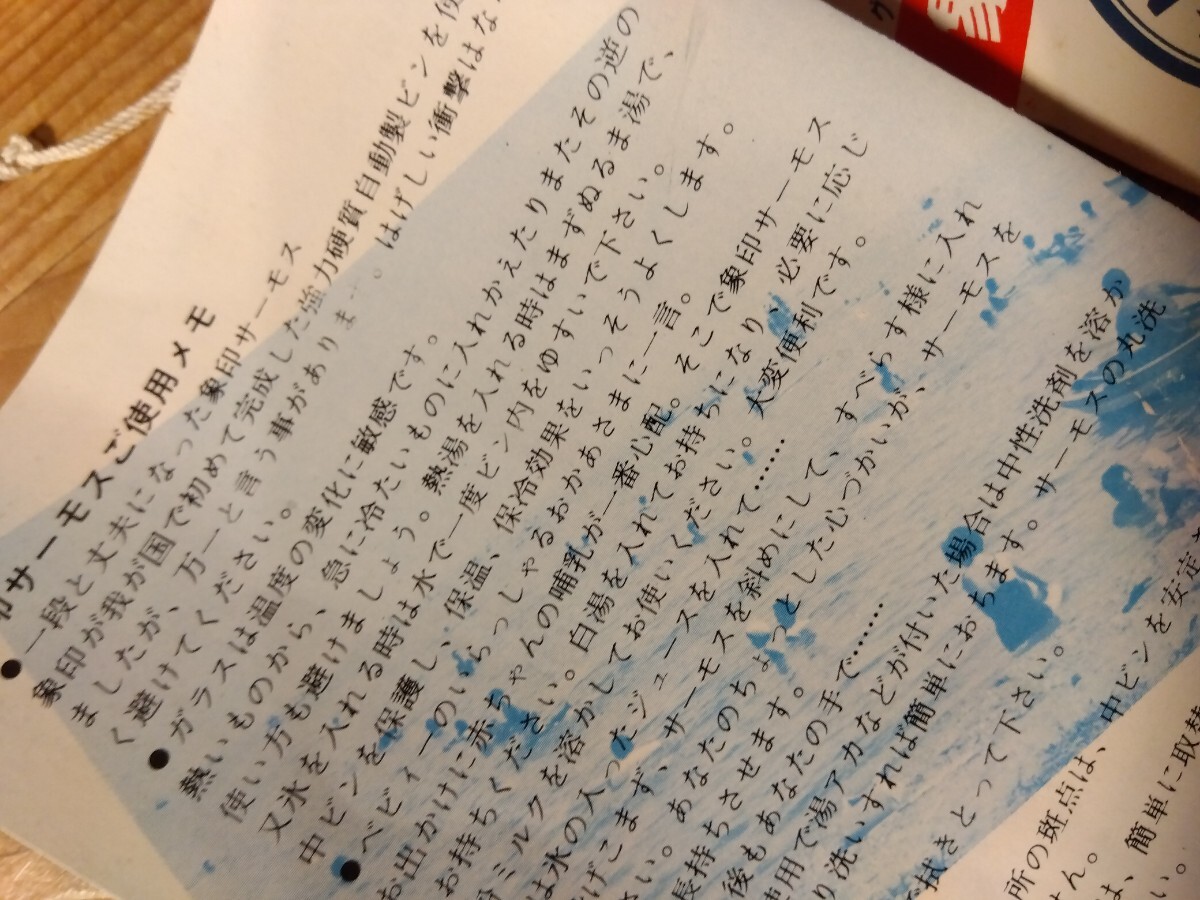 印サーモスご使用メモ
●一段と丈夫になった象印サーモス
象印が我が国で初めて完成した強力硬質自動製ビンを使
ましたが、万一と言う事がありま　はげしい衝撃はな
く避けてください。
●ガラスは温度の変化に敏感です。
熱いものから、急に冷たいものに入れかえたりまたその逆の
使い方も避けましょう。熱湯を入れる時はまずぬるま湯で、
又氷を入れる時は水で一度ビン内をゆすいで下さい。
中ビンを保護し、保温、保冷効果をいっそうよくします。
●ベビィーのいらっしゃるおかあさまに一言。
お出かけに赤ちゃんの哺乳が一番心配。そこで象印サーモス
お持ちください。白湯を入れてお持ちになり、必要に応じ
粉ミルクを溶かしてお使いください。大変便利です。
は氷の入ったジュースを入れて……
げこまず、サーモスを斜めにして、すべらす様に入れ
さい。あなたのちょっとした心づかいが、サーモスを
長持ちさせます。
後もあなたの手で……
使用で湯アカなどが付いた場合は中性洗剤を溶か
り洗いすれば簡単におちます。サーモスの丸洗
で拭きとって下さい。
所の斑点は、中ビンを安定
せん。
は、簡単に取替
い。
ク